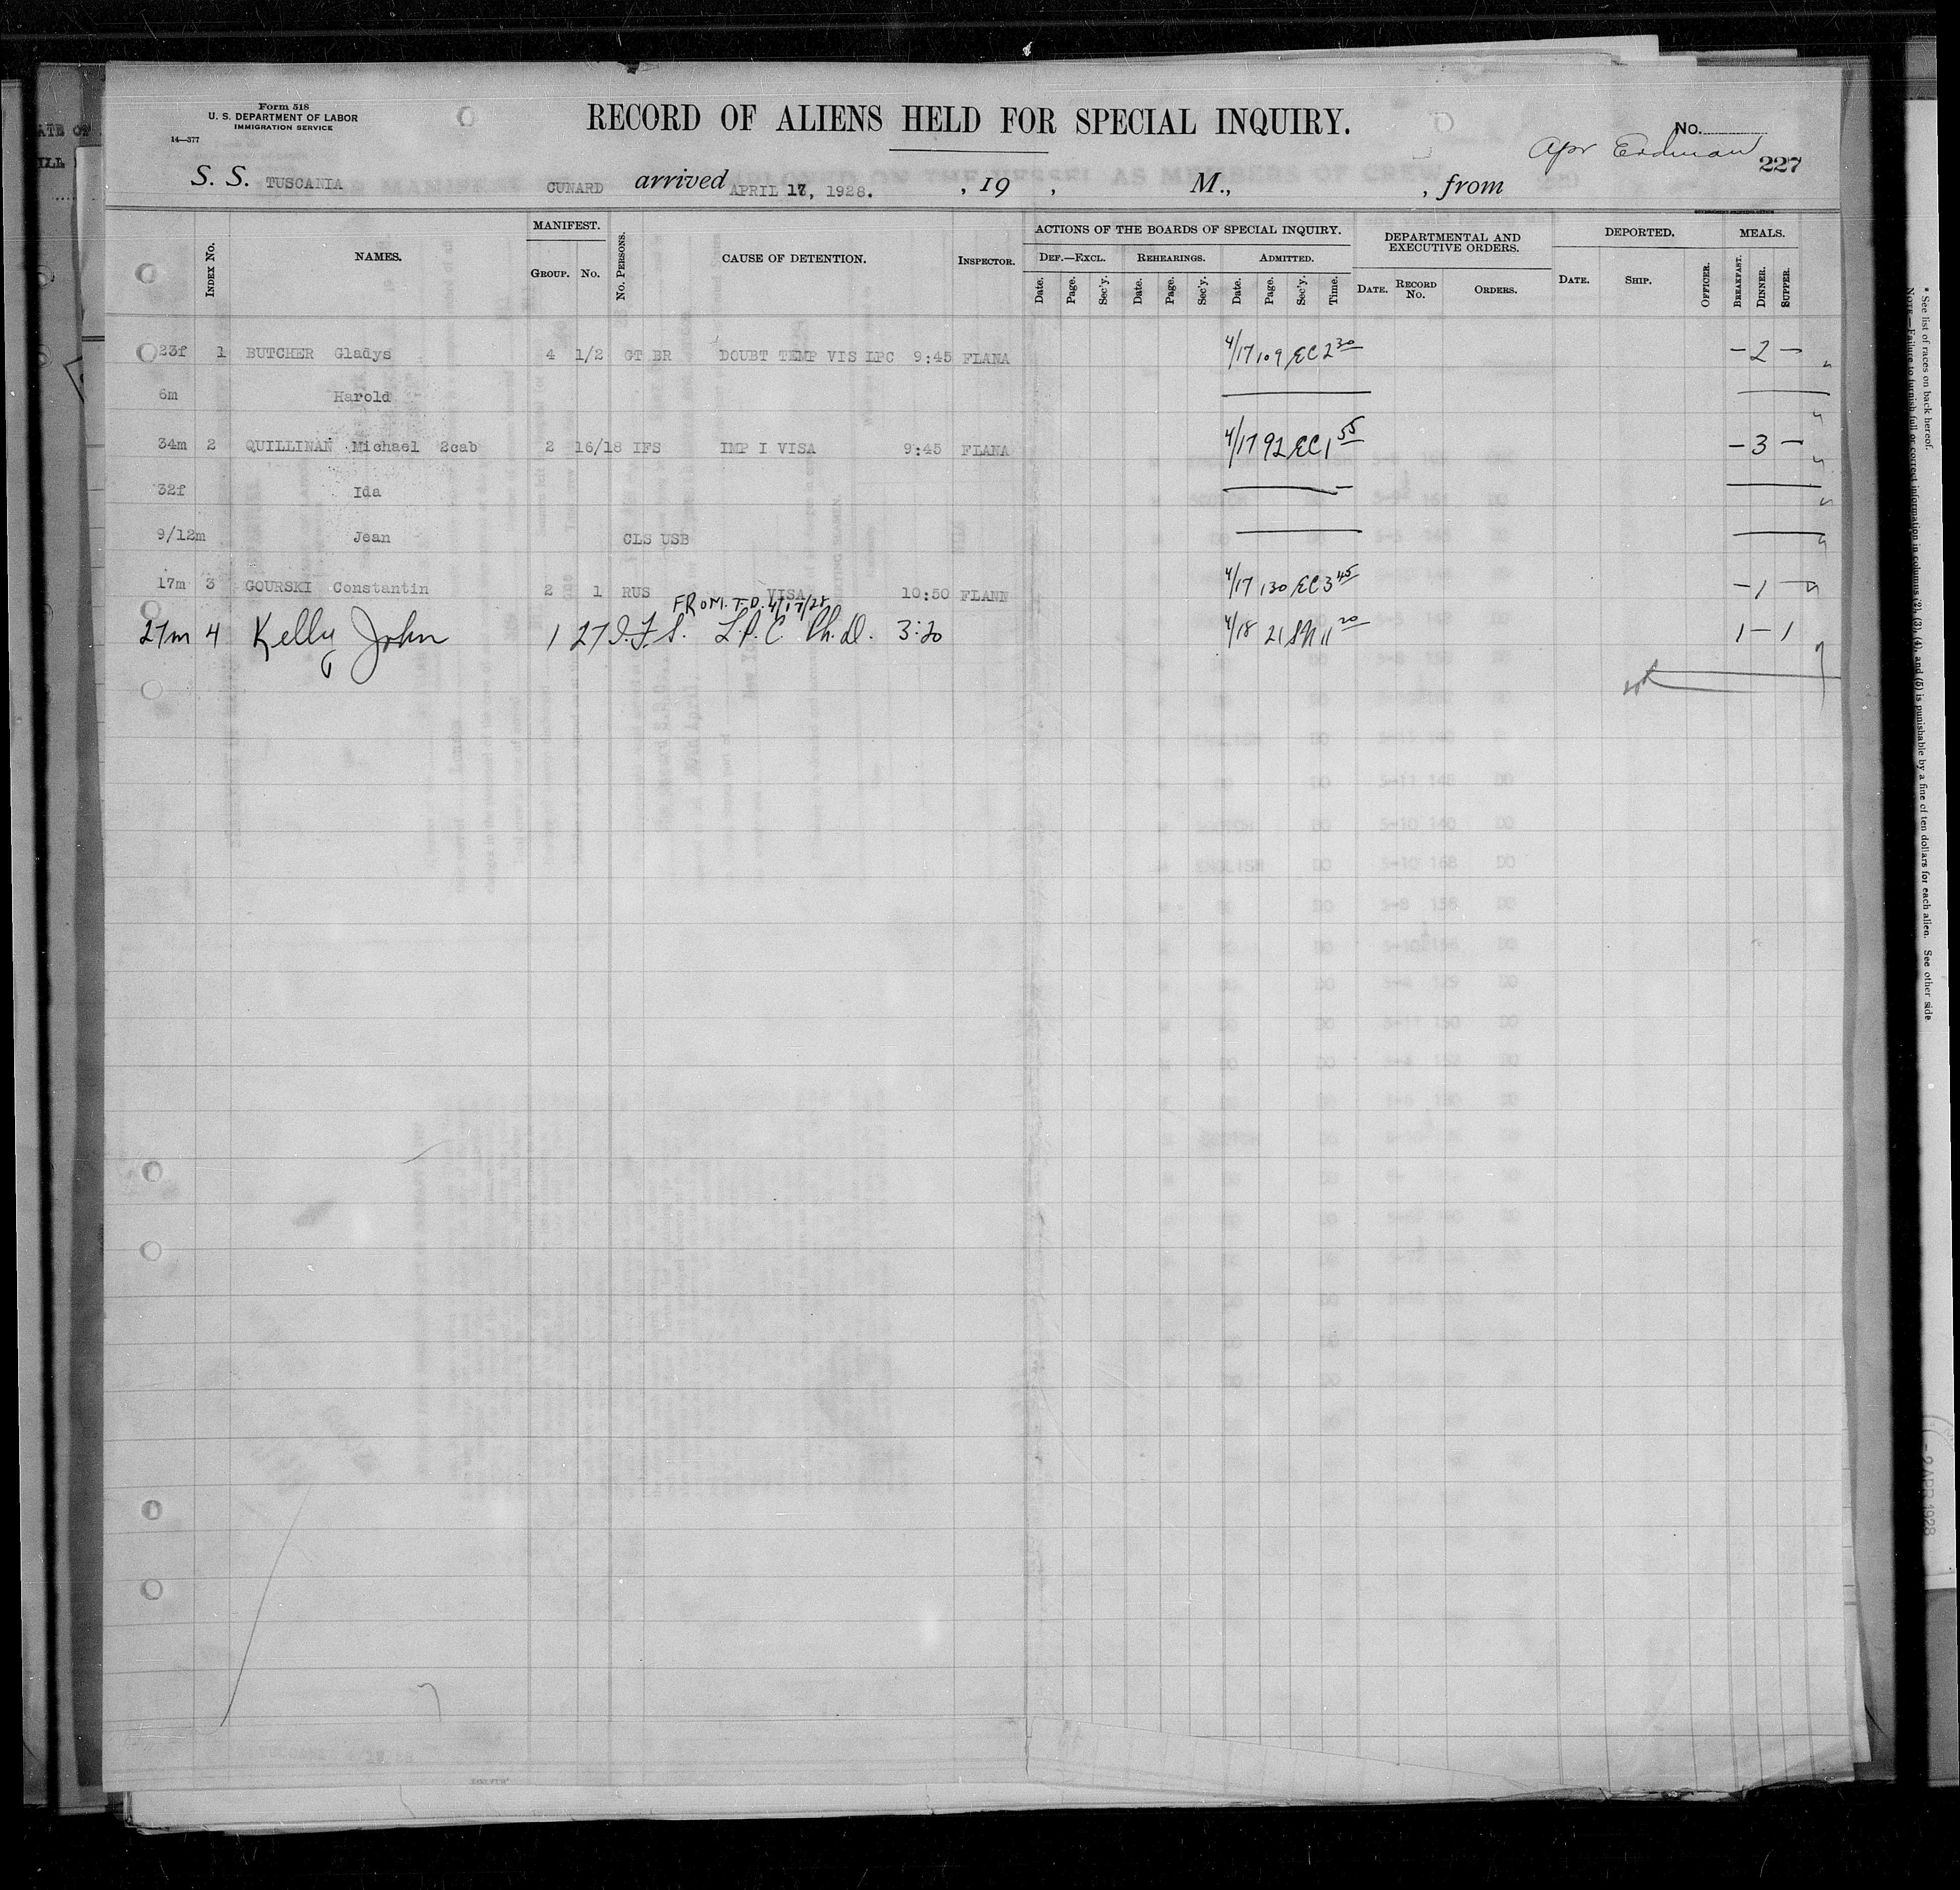 Form 518
U. S. DEPARTMENT OF LABOR
IMMIGRATION SERVICE
14—377
RECORD OF ALIENS HELD FOR SPECIAL INQUIRY.
No.
Apr Erdman
227
S. S. TUSCANIA CUNARD arrived APRIL 17, 1928. , 19 , M., , from
MANIFEST. ACTIONS OF THE BOARDS OF SPECIAL INQUIRY. DEPARTMENTAL AND EXECUTIVE ORDERS. DEPORTED. MEALS.
Index No. NAMES. Group. No. No. Persons. CAUSE OF DETENTION. Inspector. Def.—Excl. Rehearings. Admitted.
Date. Page. Sec'y. Date. Page. Sec'y. Date. Page. Sec'y. Time. Date. Record No. Orders. Date. Ship. Officer. Breakfast. Dinner. Supper.
23f 1 BUTCHER Gladys 4 1/2 GT BR DOUBT TEMP VIS LPC 9:45 FLANA 4/17 109 EC 2 30 – 2 –
6m Harold
34m 2 QUILLINAN Michael 2cab 2 16/18 IFS IMP I VISA 9:45 FLANA 4/17 92 EC 1 55 – 3 –
32f Ida
9/12m Jean CLS USB
17m 3 GOURSKI Constantin 2 1 RUS VISA 10:50 FLANN 4/17 130 EC 3 45 – 1 –
FROM. T.D. 4/17/28
27m 4 Kelly John 1 27 I.F.S. L.P.C. Ph.D. 3:20 4/18 21 SN 11 20 1 – 1
* See list of races on back hereof.
Note.—Failure to furnish full or correct information in columns (2), (3), (4), and (5) is punishable by a fine of ten dollars for each alien. See other side
2 APR 1928